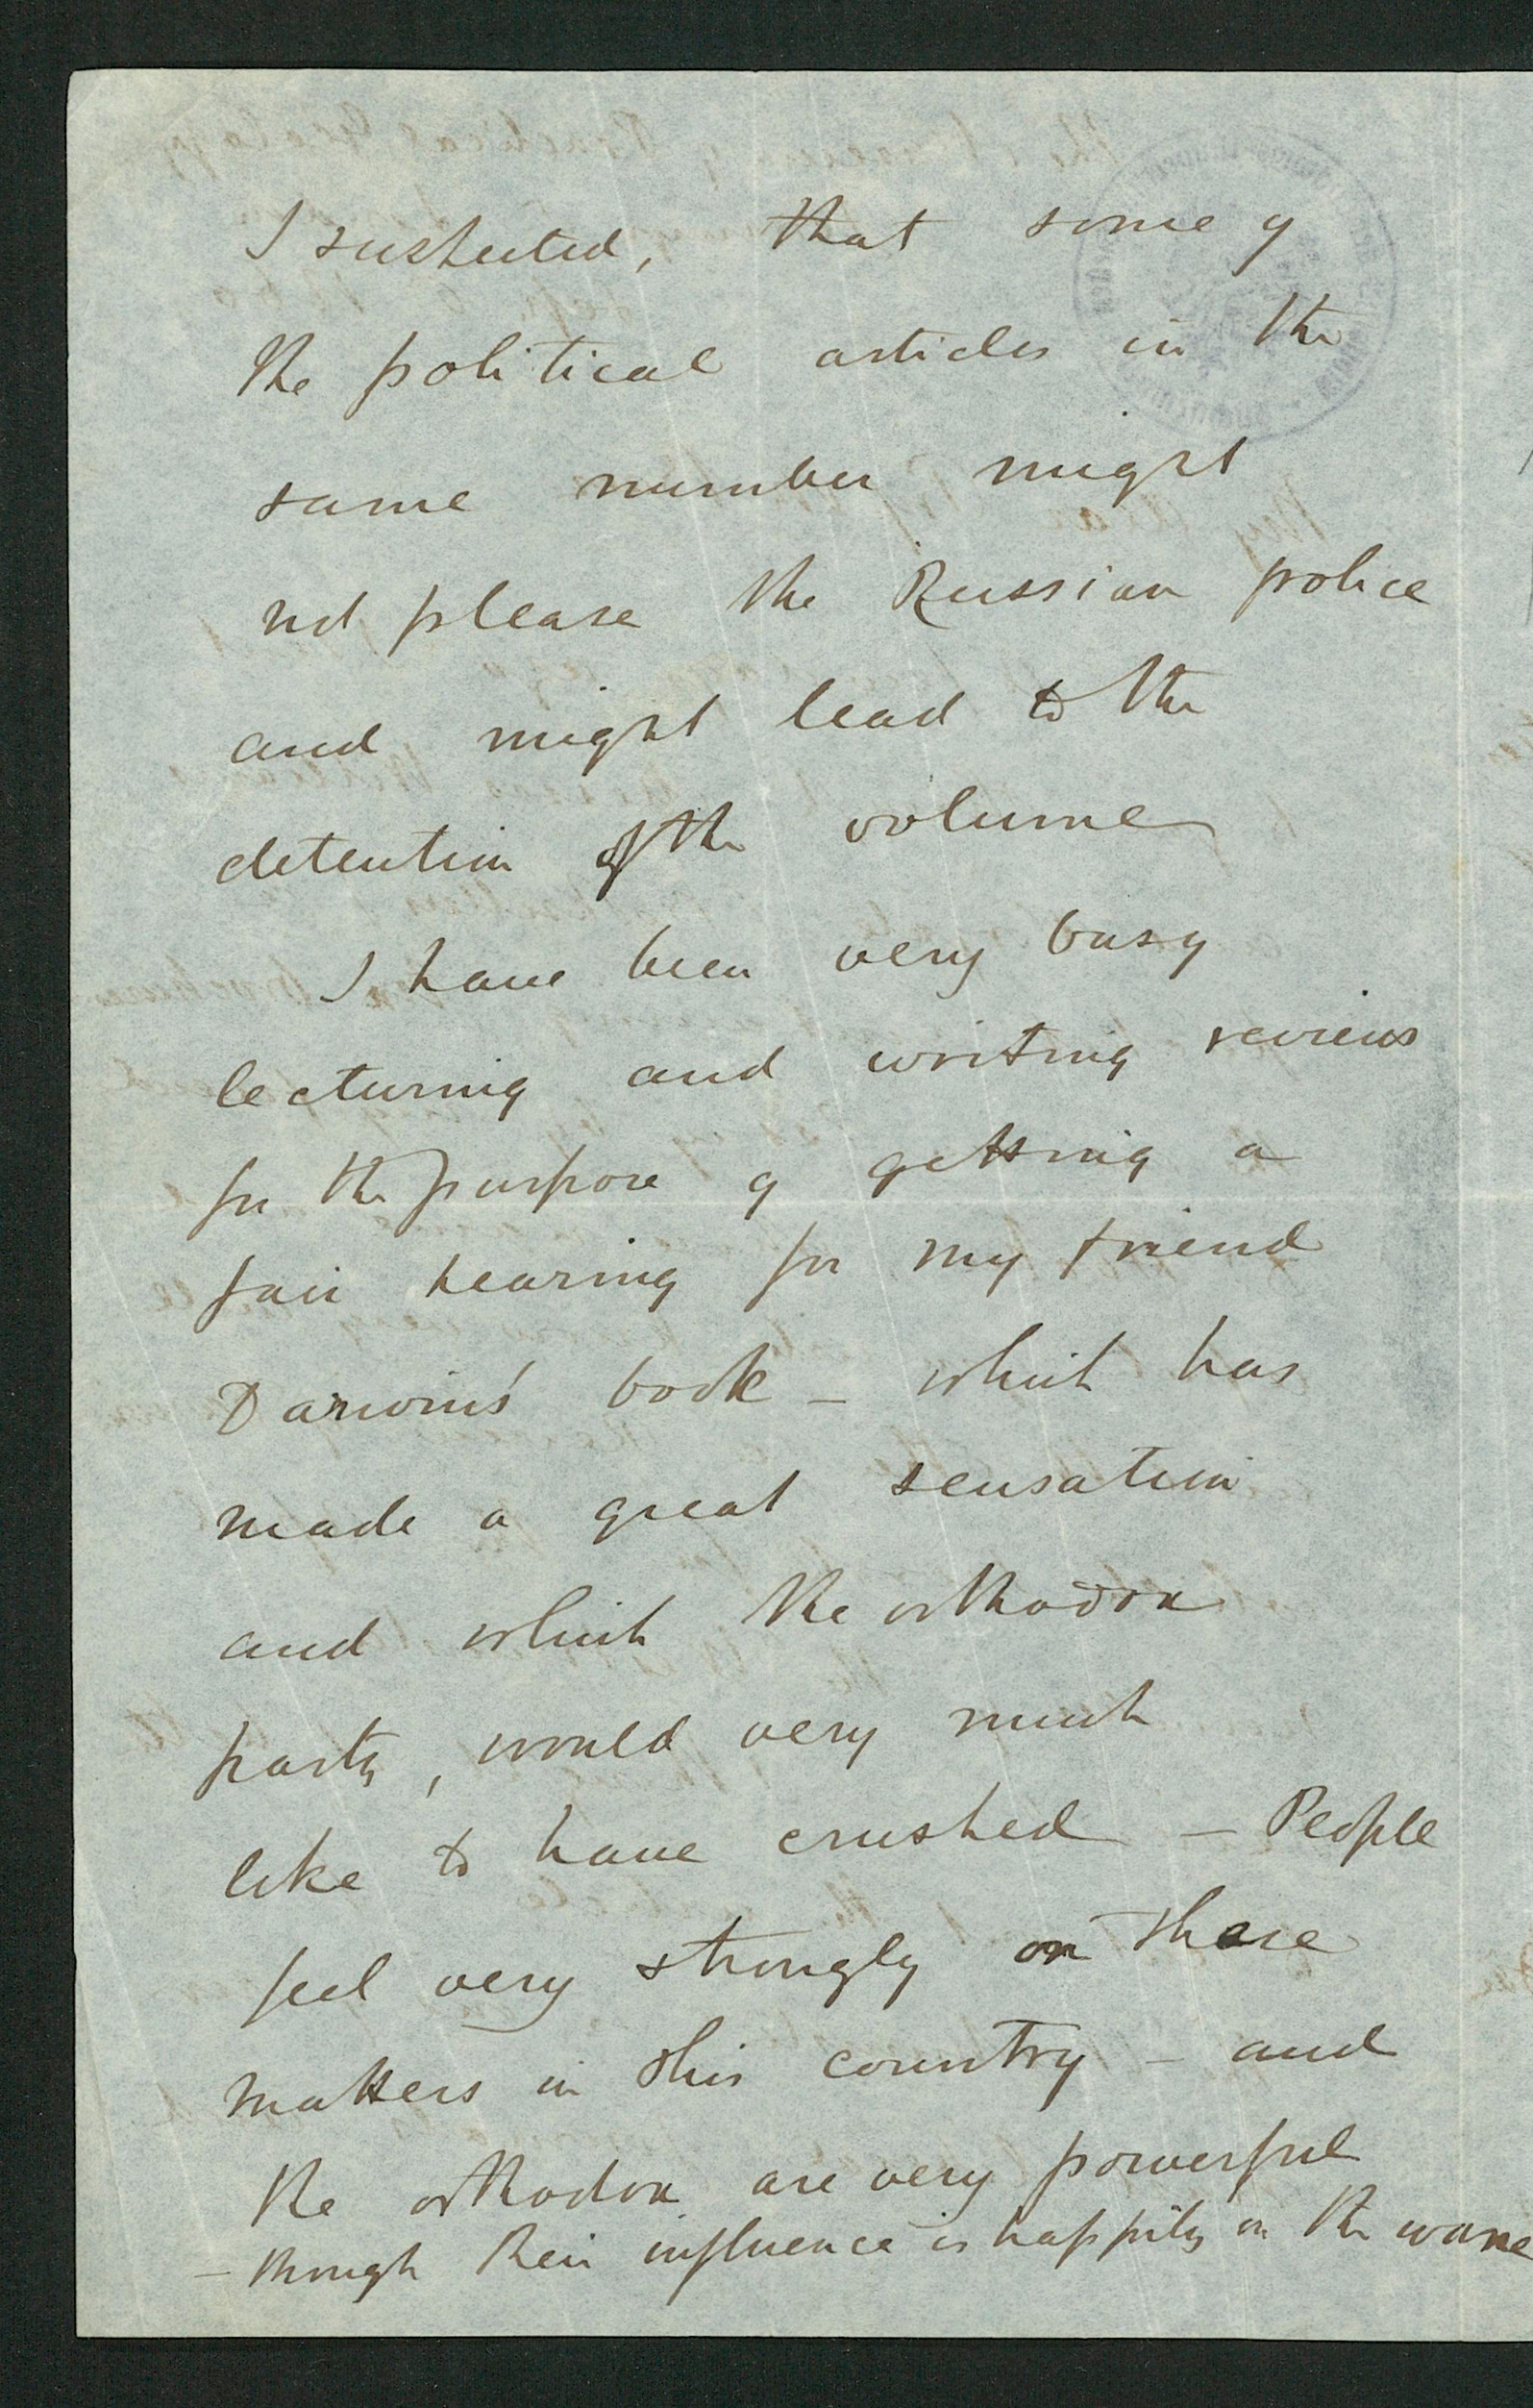 I suspected, that some of
the political articles in the
same number might
not please the Russian police
and might lead to the
detention of the volume
I have been very busy
lecturing and writing reviews
for the purpose of getting a
fair hearing for my friend
Darwin's book – which has
made a great sensation
and which the orthodox
party, would very much
like to have crushed – People
feel very strongly on these
matters in this country – and
the orthodox are very powerful
– though their influence is happily on the wane